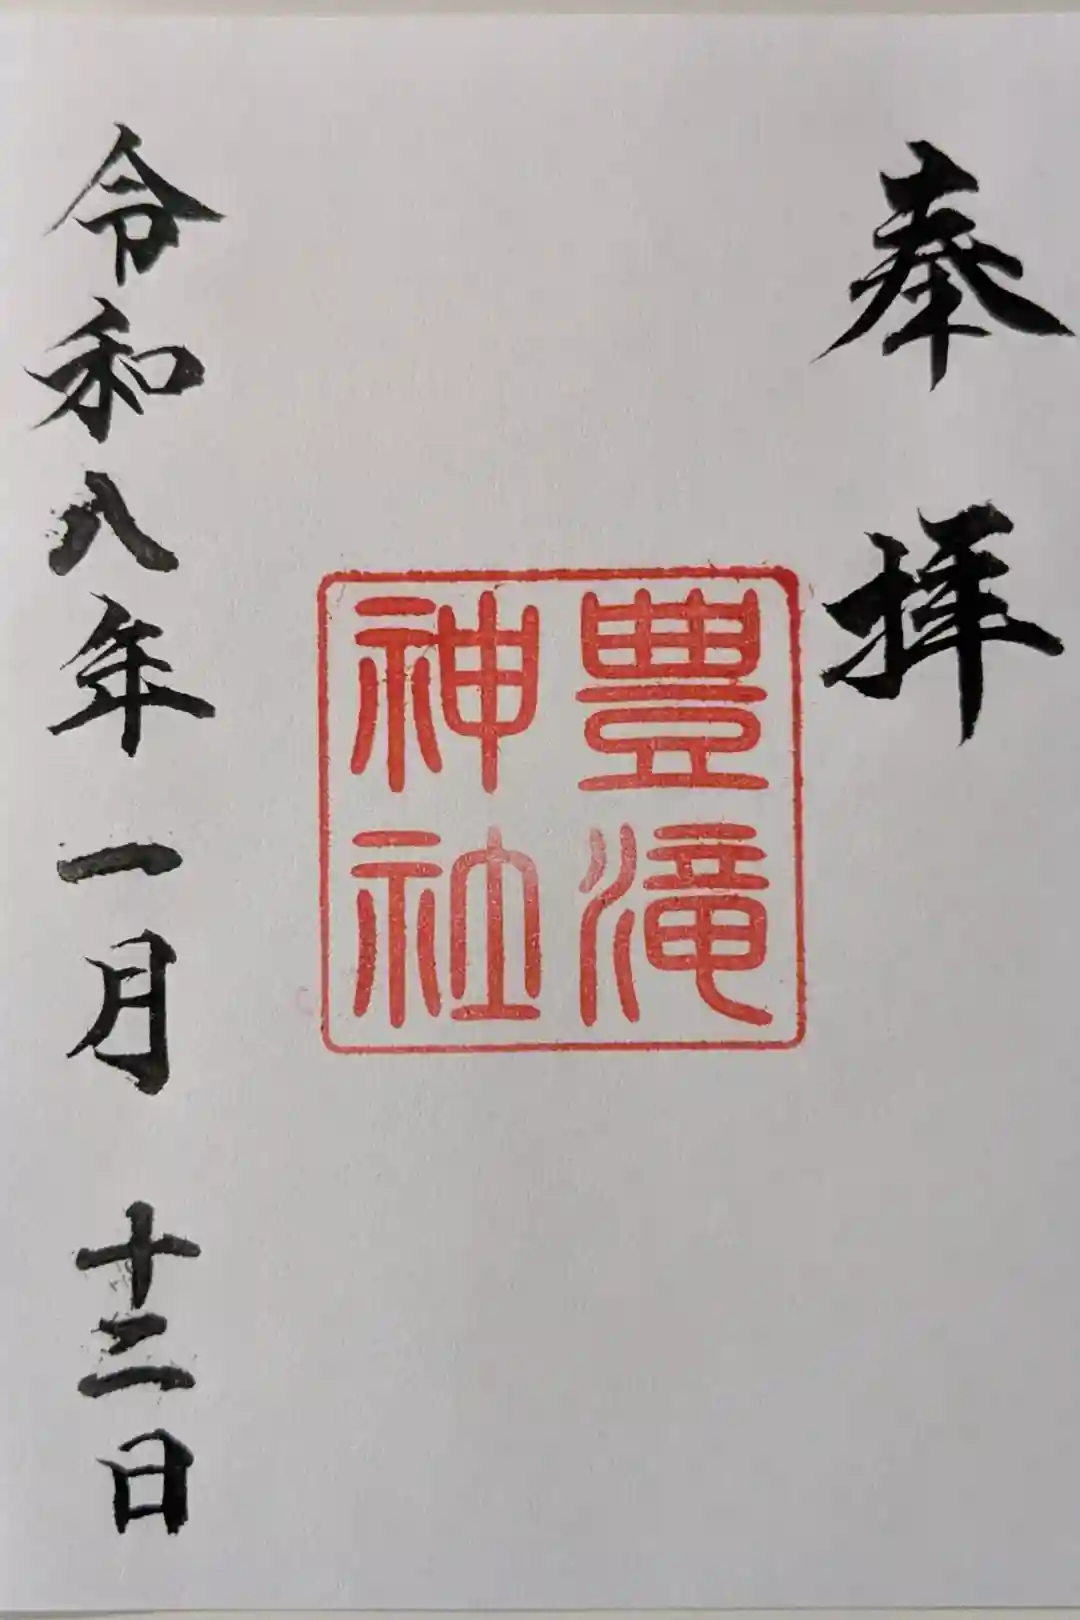 奉拝
豊滝
神社
令和八年一月十二日